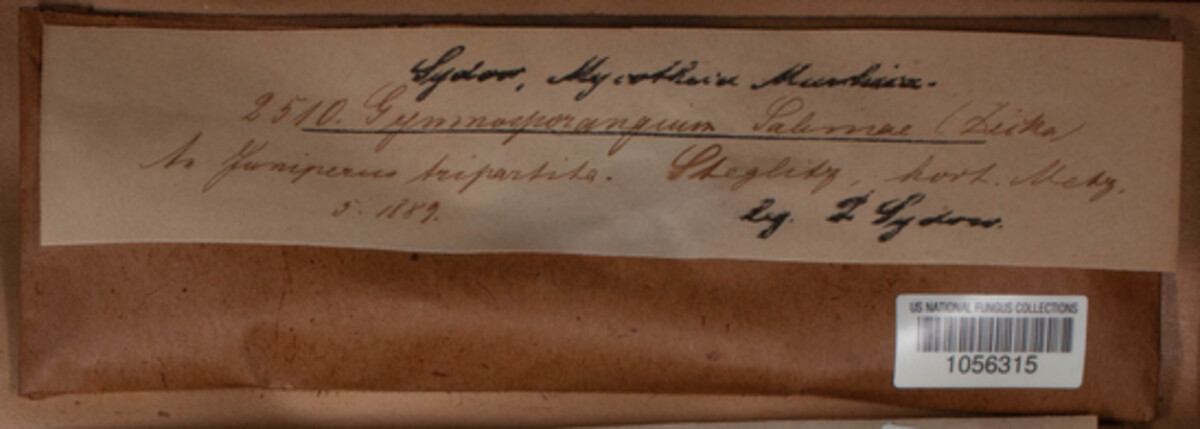 Sydow, Mycotheca Marchica.
2510. Gymnosporangium Sabinae (Dicks)
An Juniperus tripartita. Steglitz, hort. Metz.
5. 1889.
leg. P Sydow.
US NATIONAL FUNGUS COLLECTIONS
1056315